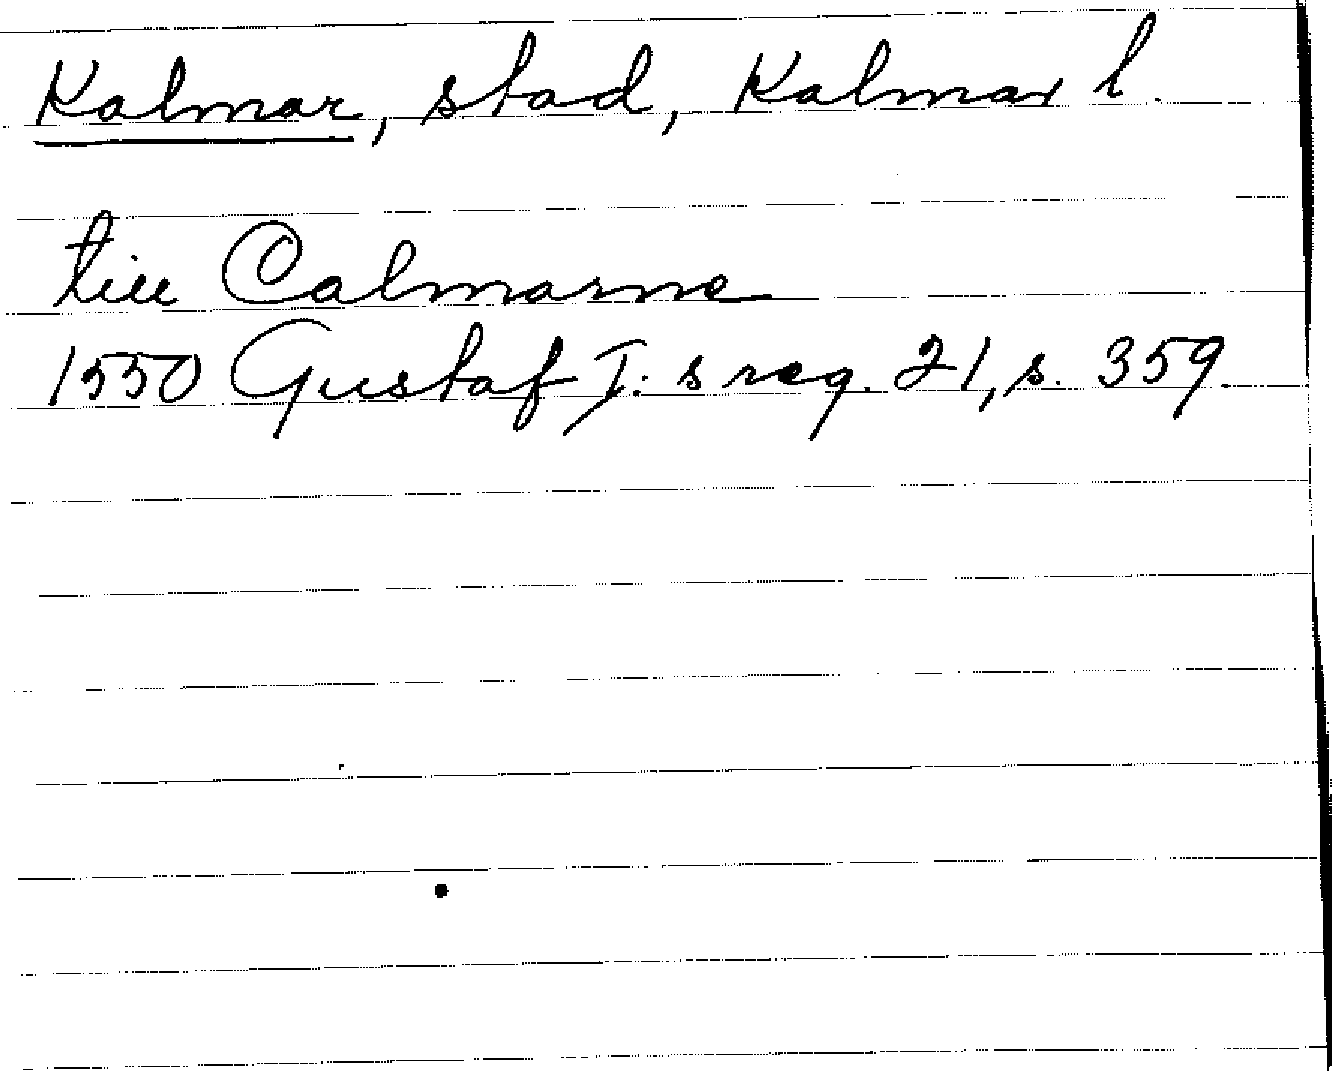 Kalmar, stad, Kalmar l.
till Calmarne
1550 Gustaf I:s reg. 21, s. 359.